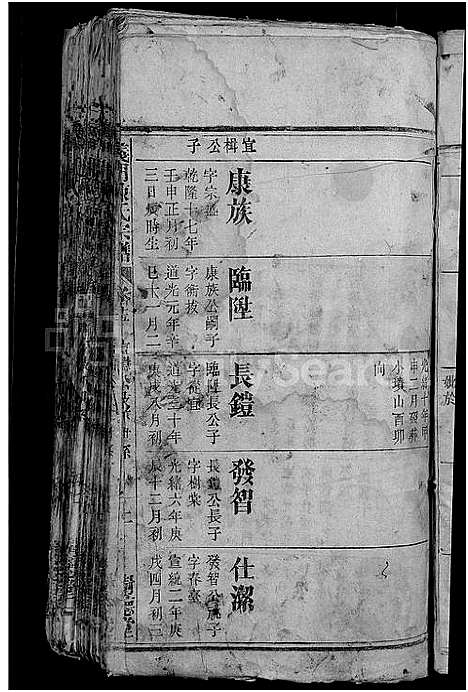 宜楫公子
康族
字宗
乾隆十七年
壬申正月初
三日寅時生
臨陞
康族公嗣子
字衙拔
道光元年辛
巳十一月二
長鎧
臨陞長公子
字從宜
道光三十年
庚戌八月初
發智
長鎧公長子
字樹棠
光緒六年庚
辰十二月初
仕潔
發智公長子
字春臺
宣統二年庚
戌四月初二
光緒十年甲
申二月癸葬
小墳山酉卯
向
義門陳氏宗譜
樹德堂